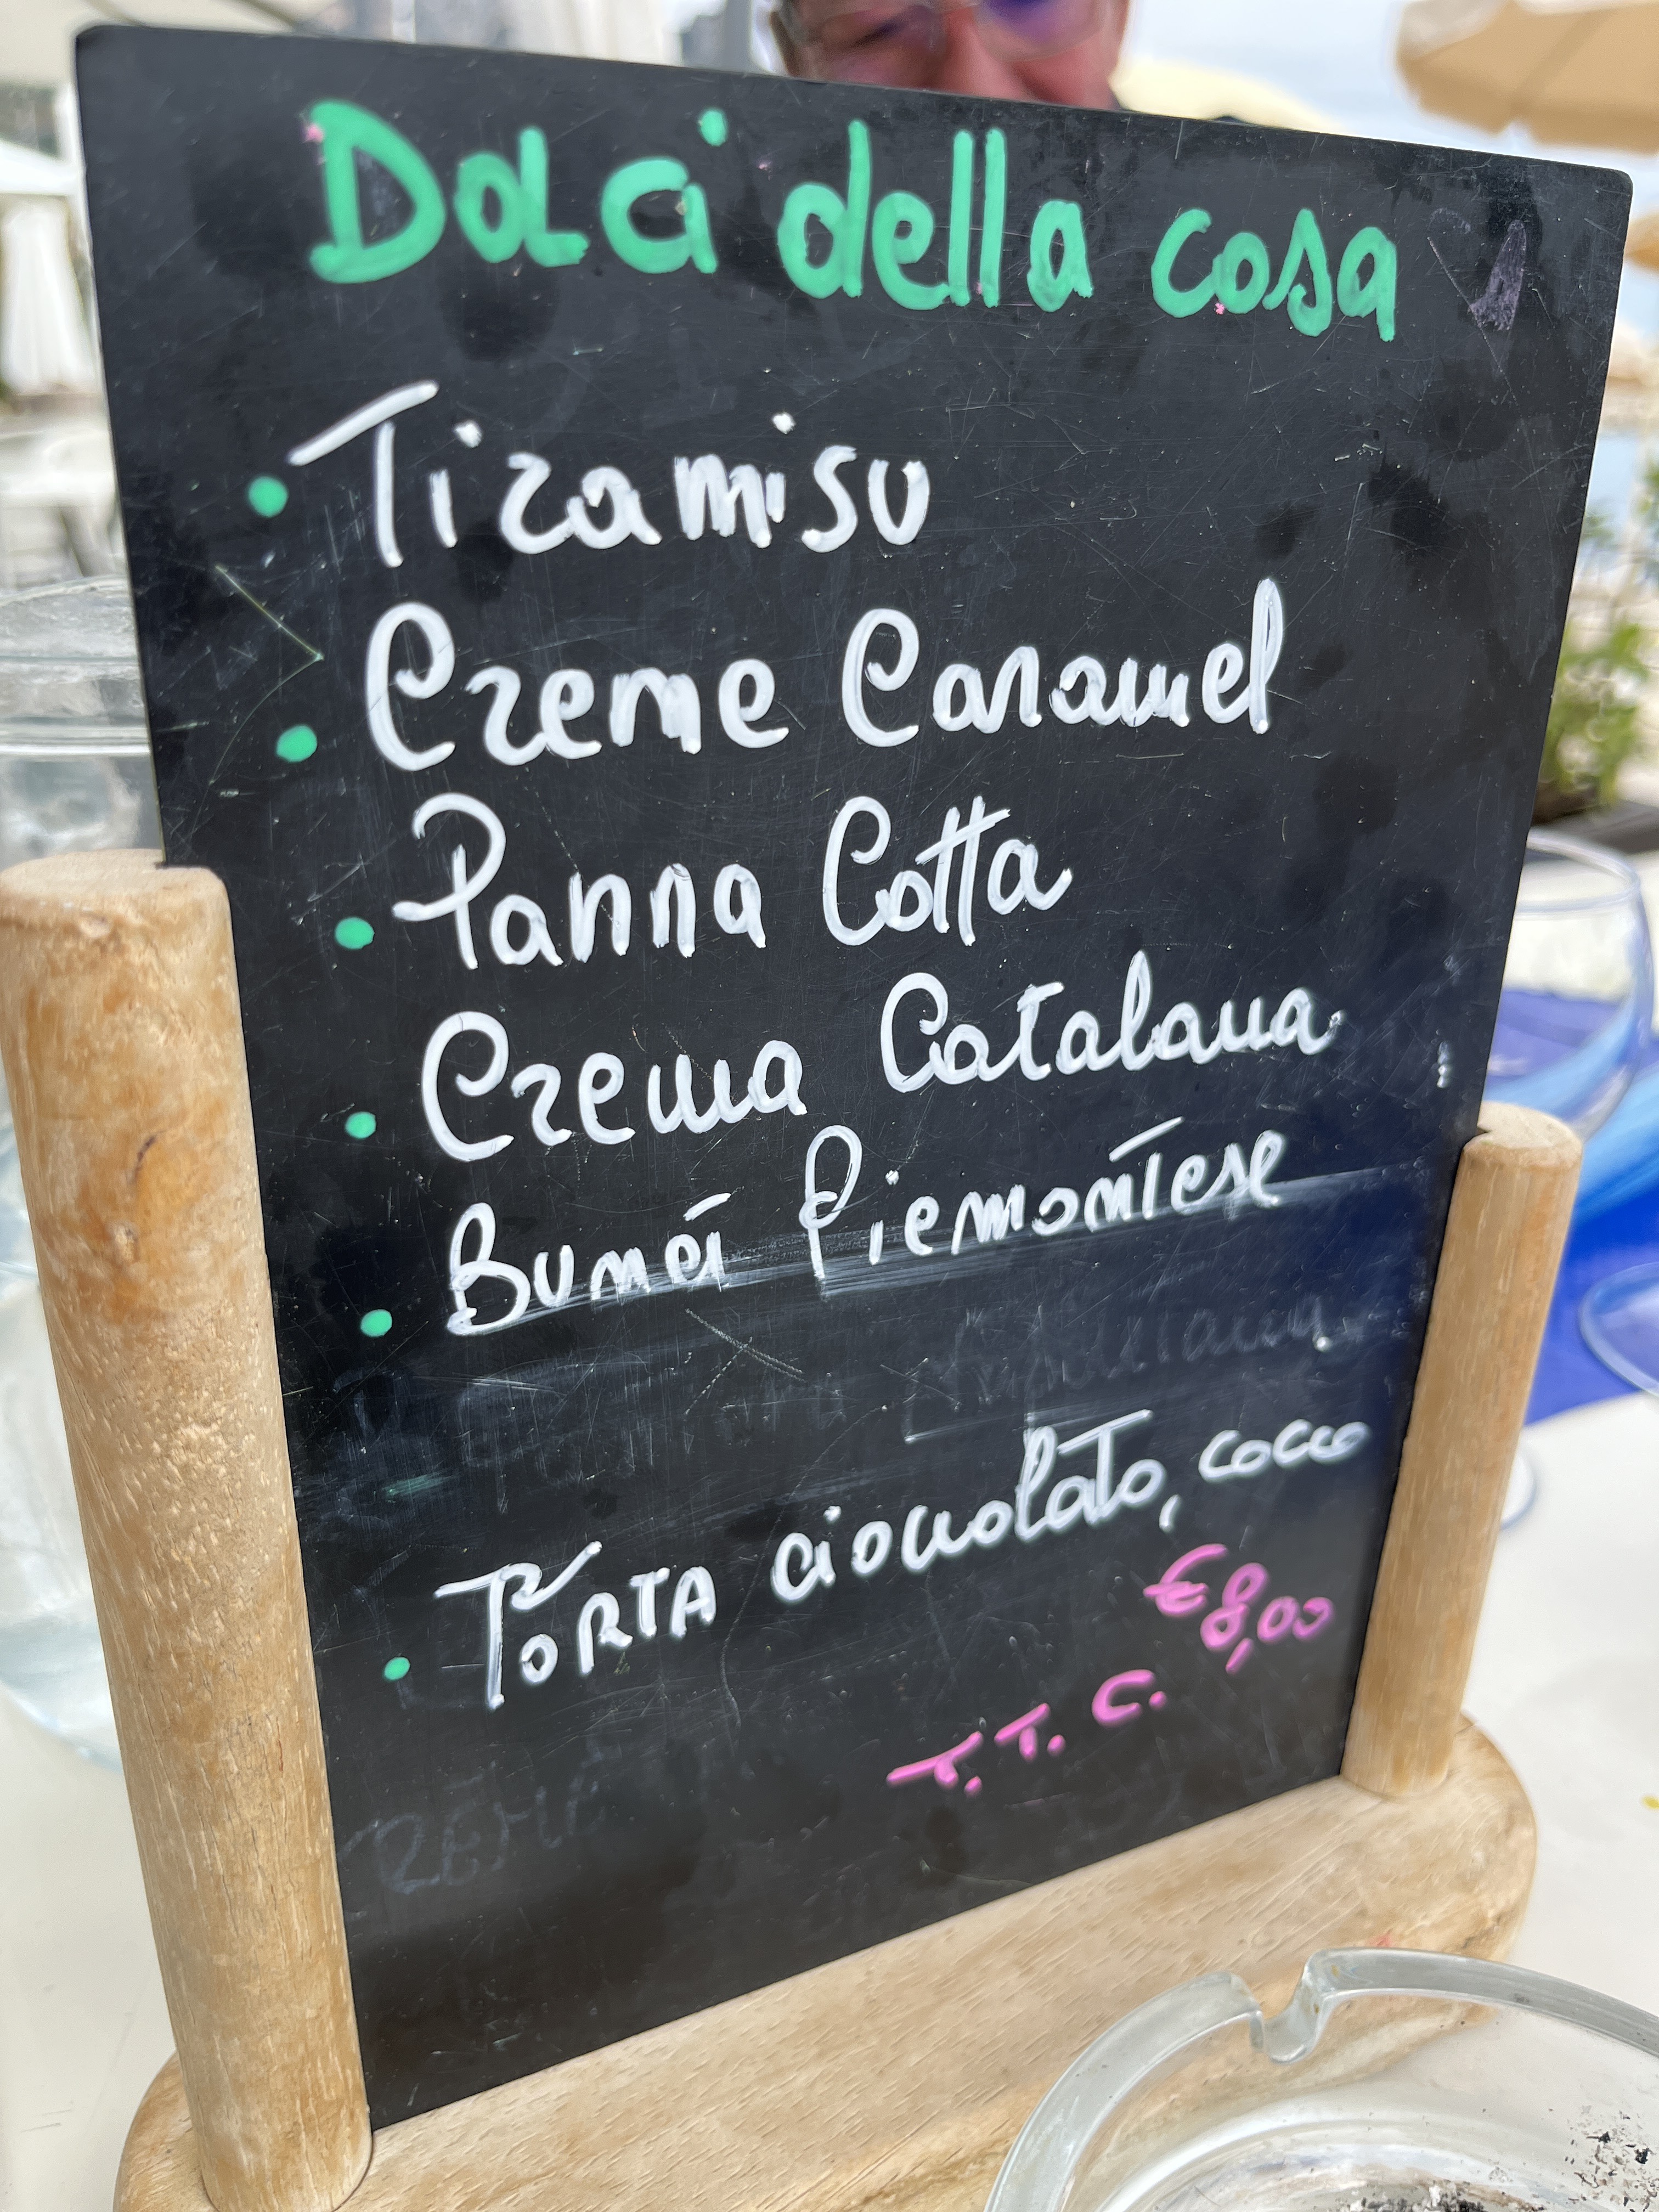 Dolci della casa
• Tiramisu
• Creme Caramel
• Panna Cotta
• Crema Catalana
• Bunet Piemontese
• TORTA cioccolato, cocco
€8,00
T.T.C.